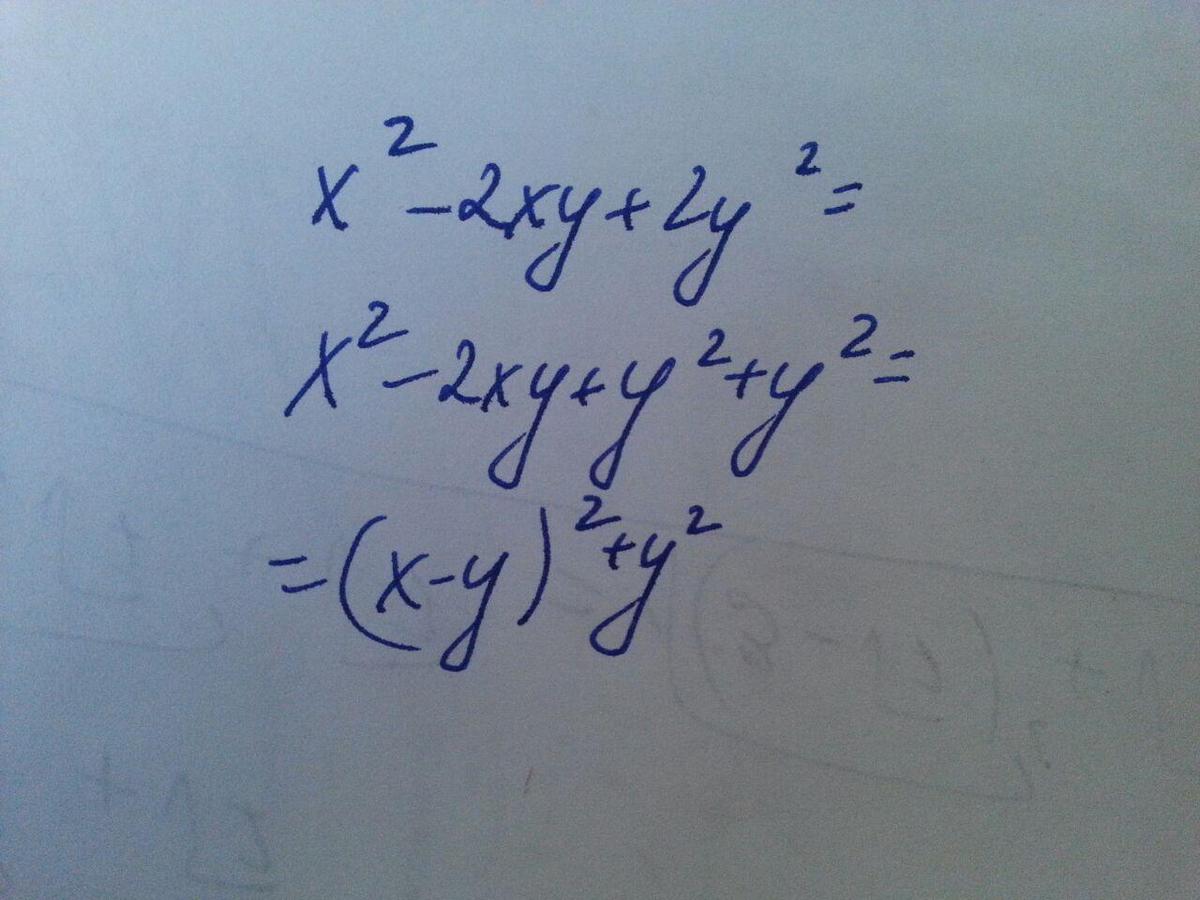 x² - 2xy + 2y² =
x² - 2xy + y² + y² =
= (x - y)² + y²